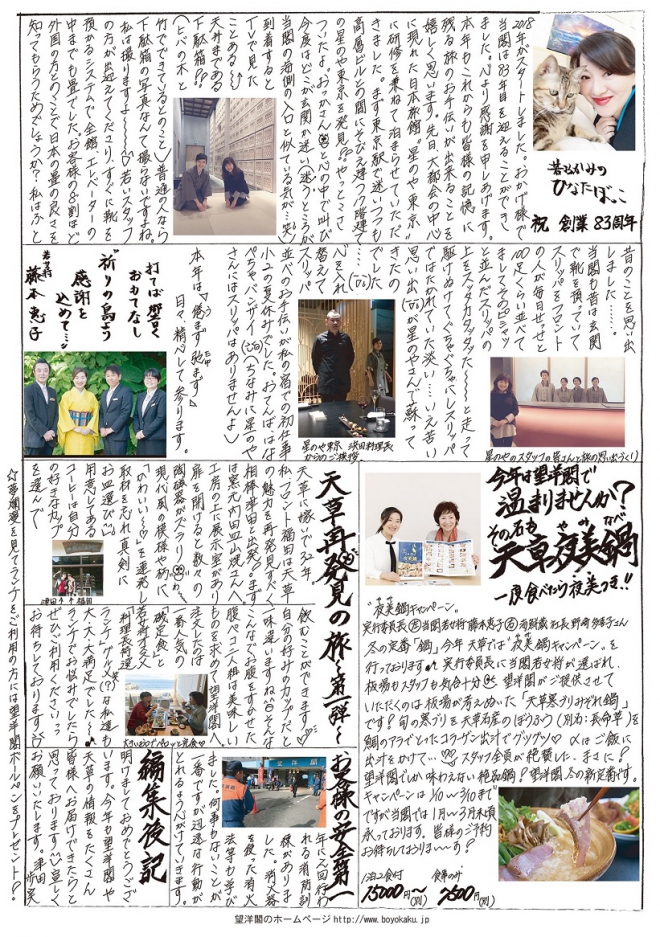 2018年がスタートしました。おかげ様で
当館は83年目を迎えることができ
ました。心より感謝を申しあげます。
本年もこれからも皆様の記憶に
残る旅のお手伝いが出来ることを
嬉しく思います。先日、大都会の中心
に現れた日本旅館。星のや東京
に研修を兼ねて泊まらせていただ
きました。まず東京駅で迷いつつも
高層ビルとの間にそびえ建つ17階建て
の星のや東京を発見。やっとこさ
ついたよ。おっかさん。と心の中で叫び
今度はどこが玄関か迷い迷うところが
当館の海側の入口と似ている気が…笑
到着すると
TVで見た
ことある〜
天井まである
下駄箱!!
(ヒバの木と
竹でできているとのこと)普通の人なら
下駄箱の写真なんて撮らないですよね。
私は撮りますよ〜。若いスタッフ
の方が出迎えてくださり、すぐに靴を
預かるシステムで全館、エレベーターの
中までも畳でした。お客様の8割ほど
外国の方とのことで日本の畳の良さを
知ってもらうためでしょうか?私はふと
若女将のひなたぼっこ
祝 創業83周年
昔のことを思い出
しました……。
当館も昔は玄関
で靴を預っていて
スリッパをフロント
の人が毎日せっせと
100足くらい並べて
ましてそのビシャッ
と並んだスリッパの
上をスタタカタッタッタ〜と走って
駆けぬけてぐちゃぐちゃにしスリッパ
ではたかれていた淡い…いえ苦い
思い出が星のやさんで蘇って
きたの
でした
べそをくれ
替えて
スリッパ
並べのお手伝いが私の宿での初仕事
小2の夏休みでした。おてんばはな
ぺちゃバンザイ(ちなみに星のや
さんにはスリッパはありませんよ)
本年は
日々、精心して参ります。
打てば響く
おもてなし
祈りの島より
感謝を
込めて…
若女将
藤本恵子
星のや東京 浜田料理長
からのご挨拶
星のやのスタッフの皆さんと旅の思い出づくり
今年は望洋閣で
温まりませんか?
その名も
天草の夜美鍋
やみなべ
一度食べたら夜美つき!!
“夜美鍋キャンペーン。
実行委員長 当館若女将藤本恵子
冬の定番「鍋」今年天草では“夜美鍋キャンペーン。を
行っております。実行委員長に当館若女将が選ばれ、
板場もスタッフも気合十分 望洋閣がご提供させて
いただくのは板場が考えぬいた「天草寒ブリみぞれ鍋」
です!旬の寒ブリを天草名産のぼうふう(別名:長命草)を
鯛のアラでとったコラーゲン出汁でグツグツ 〆はご飯に
出汁をかけて… スタッフ全員が絶賛した、まさに?
望洋閣でしか味わえない絶品鍋?望洋閣冬の新定番です。
キャンペーンは1/10〜3/10まで
ですが当館では1月〜3月末頃
承っております。皆様のご予約
お待ちしておりま〜す?
1泊2食付
15000円〜
食事のみ
7500円
天草再発見の旅〜第一弾〜
天草に嫁いで32年
私、フロント福田は天草
の魅力を再発見すべく
相棒津田と出発します。
は窯元内田皿山焼さんへ
工房の上に展示室があり
扉を開けると数々の
陶磁器がズラリ
現代風の模様や柄に
「かわいい〜」を連発し
取材を忘れ真剣に
お皿選び
用意してある
コーヒーは自分
の好きなカップ
を選んで
津田 福田
飲むことができます
自分の好みのカップだと
一味違いますね。そんな
こんなでお腹をすかせた
腹ぺこ二人組は美味しい
ものを求めて望洋閣へ
注文したのは
一番人気の
「磯定食」と
若女将考案
「料理王御選
ランチ」グルメ(?)な私達も
大・大・大満足でした〜。
ランチでお悩みでしたら
ぜひご利用くださいっ
お待ちしております
☆夢爛漫を見てランチをご利用の方には望洋閣ボールペンをプレゼント?
お客様の安全第一
年に2回行わ
れる消防訓
練がありま
した。消火器
を使った消火
法等も学び
ました。何事もないことが
一番ですが迅速な行動が
とれるよう心がけていきます。
編集後記
明けましておめでとうござい
ます。今年も望洋閣や
天草の情報をたくさん
皆様へお届けできたらと
思っております。宜しく
お願いいたします。津田
望洋閣のホームページ http://www.boyokaku.jp